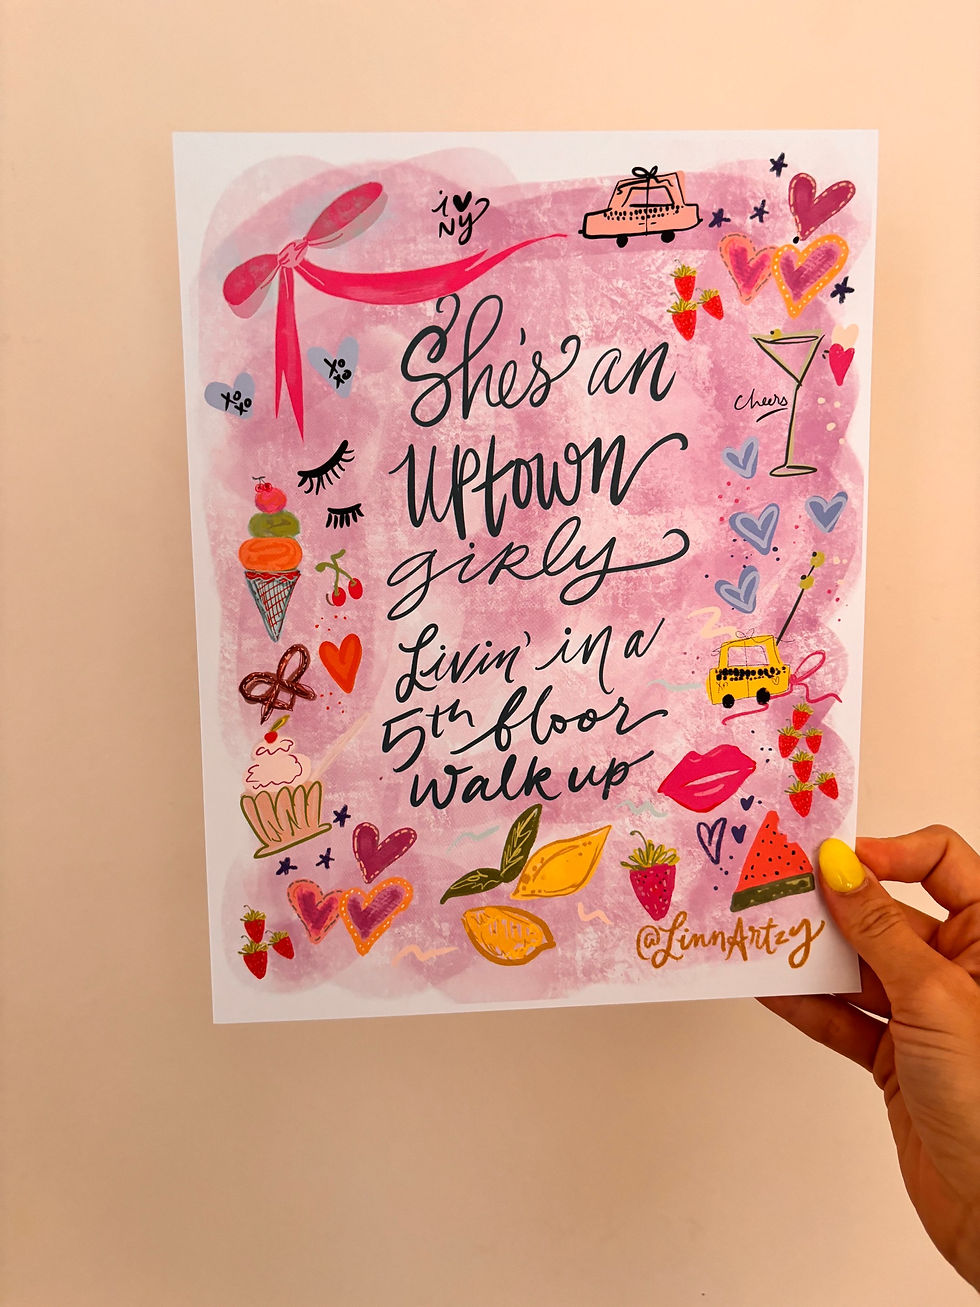 i ♥
NY
She's an
Uptown
girly
Livin' in a
5th floor
walk up
cheers
xo
xo
xo
xo
@LinnArtzy